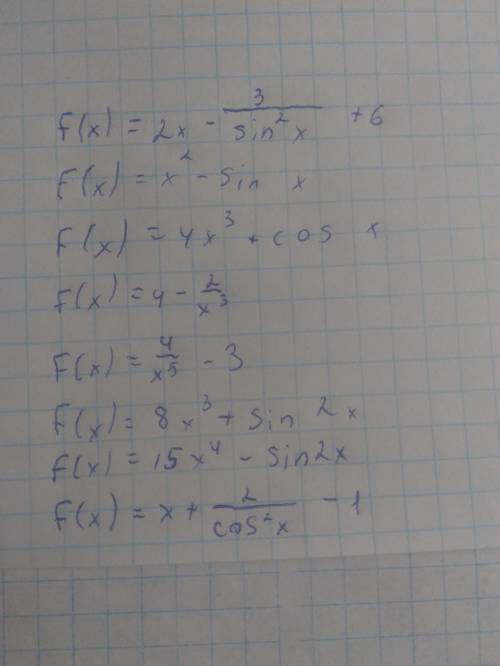 F(x) = 2x - 3/sin²x + 6
F(x) = x² - sin x
F(x) = 4x³ · cos x
F(x) = 4 - 2/x³
F(x) = 4/x⁵ - 3
F(x) = 8x³ + sin 2x
F(x) = 15x⁴ - sin2x
F(x) = x + 2/cos²x - 1